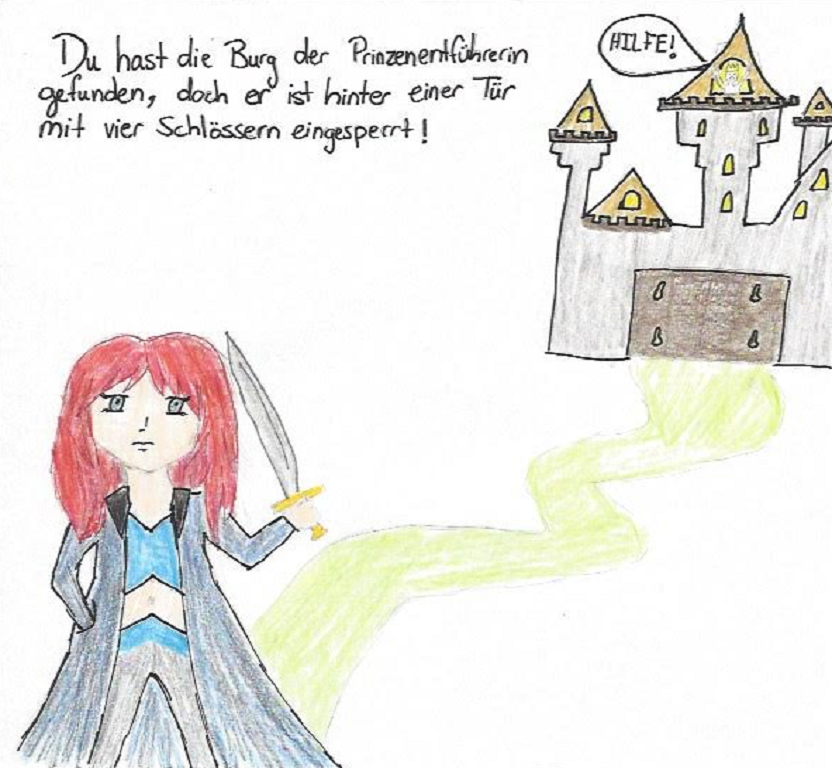 Du hast die Burg der Prinzenentführerin
gefunden, doch er ist hinter einer Tür
mit vier Schlössern eingesperrt!
HILFE!